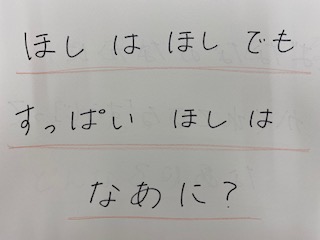 ほし は ほし でも
すっぱい ほし は
なあに?